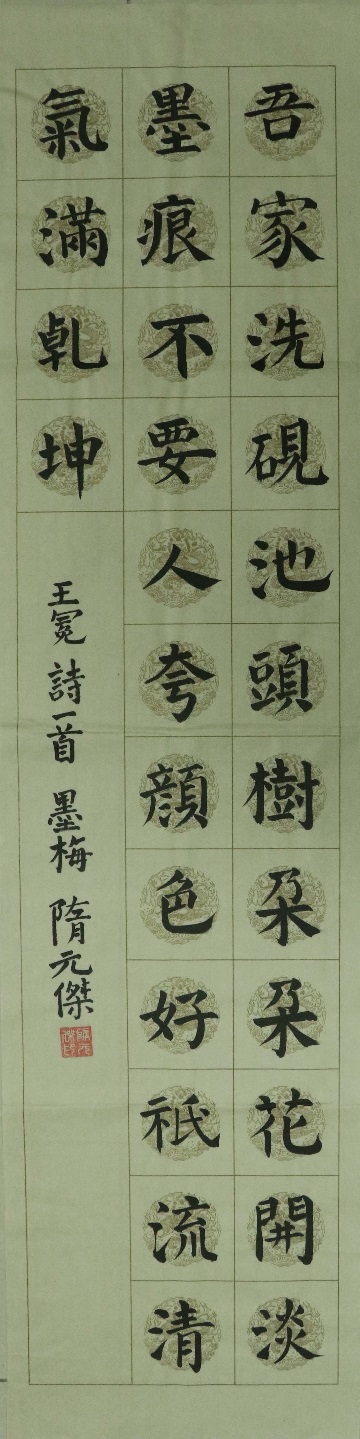 吾家洗硯池頭樹朵朵花開淡
墨痕不要人夸顔色好祇流清
氣滿乹坤
王冕 詩一首 墨梅 隋元傑